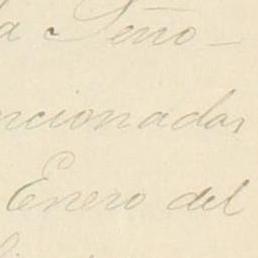 la Seño-
ncionadas
Enero del